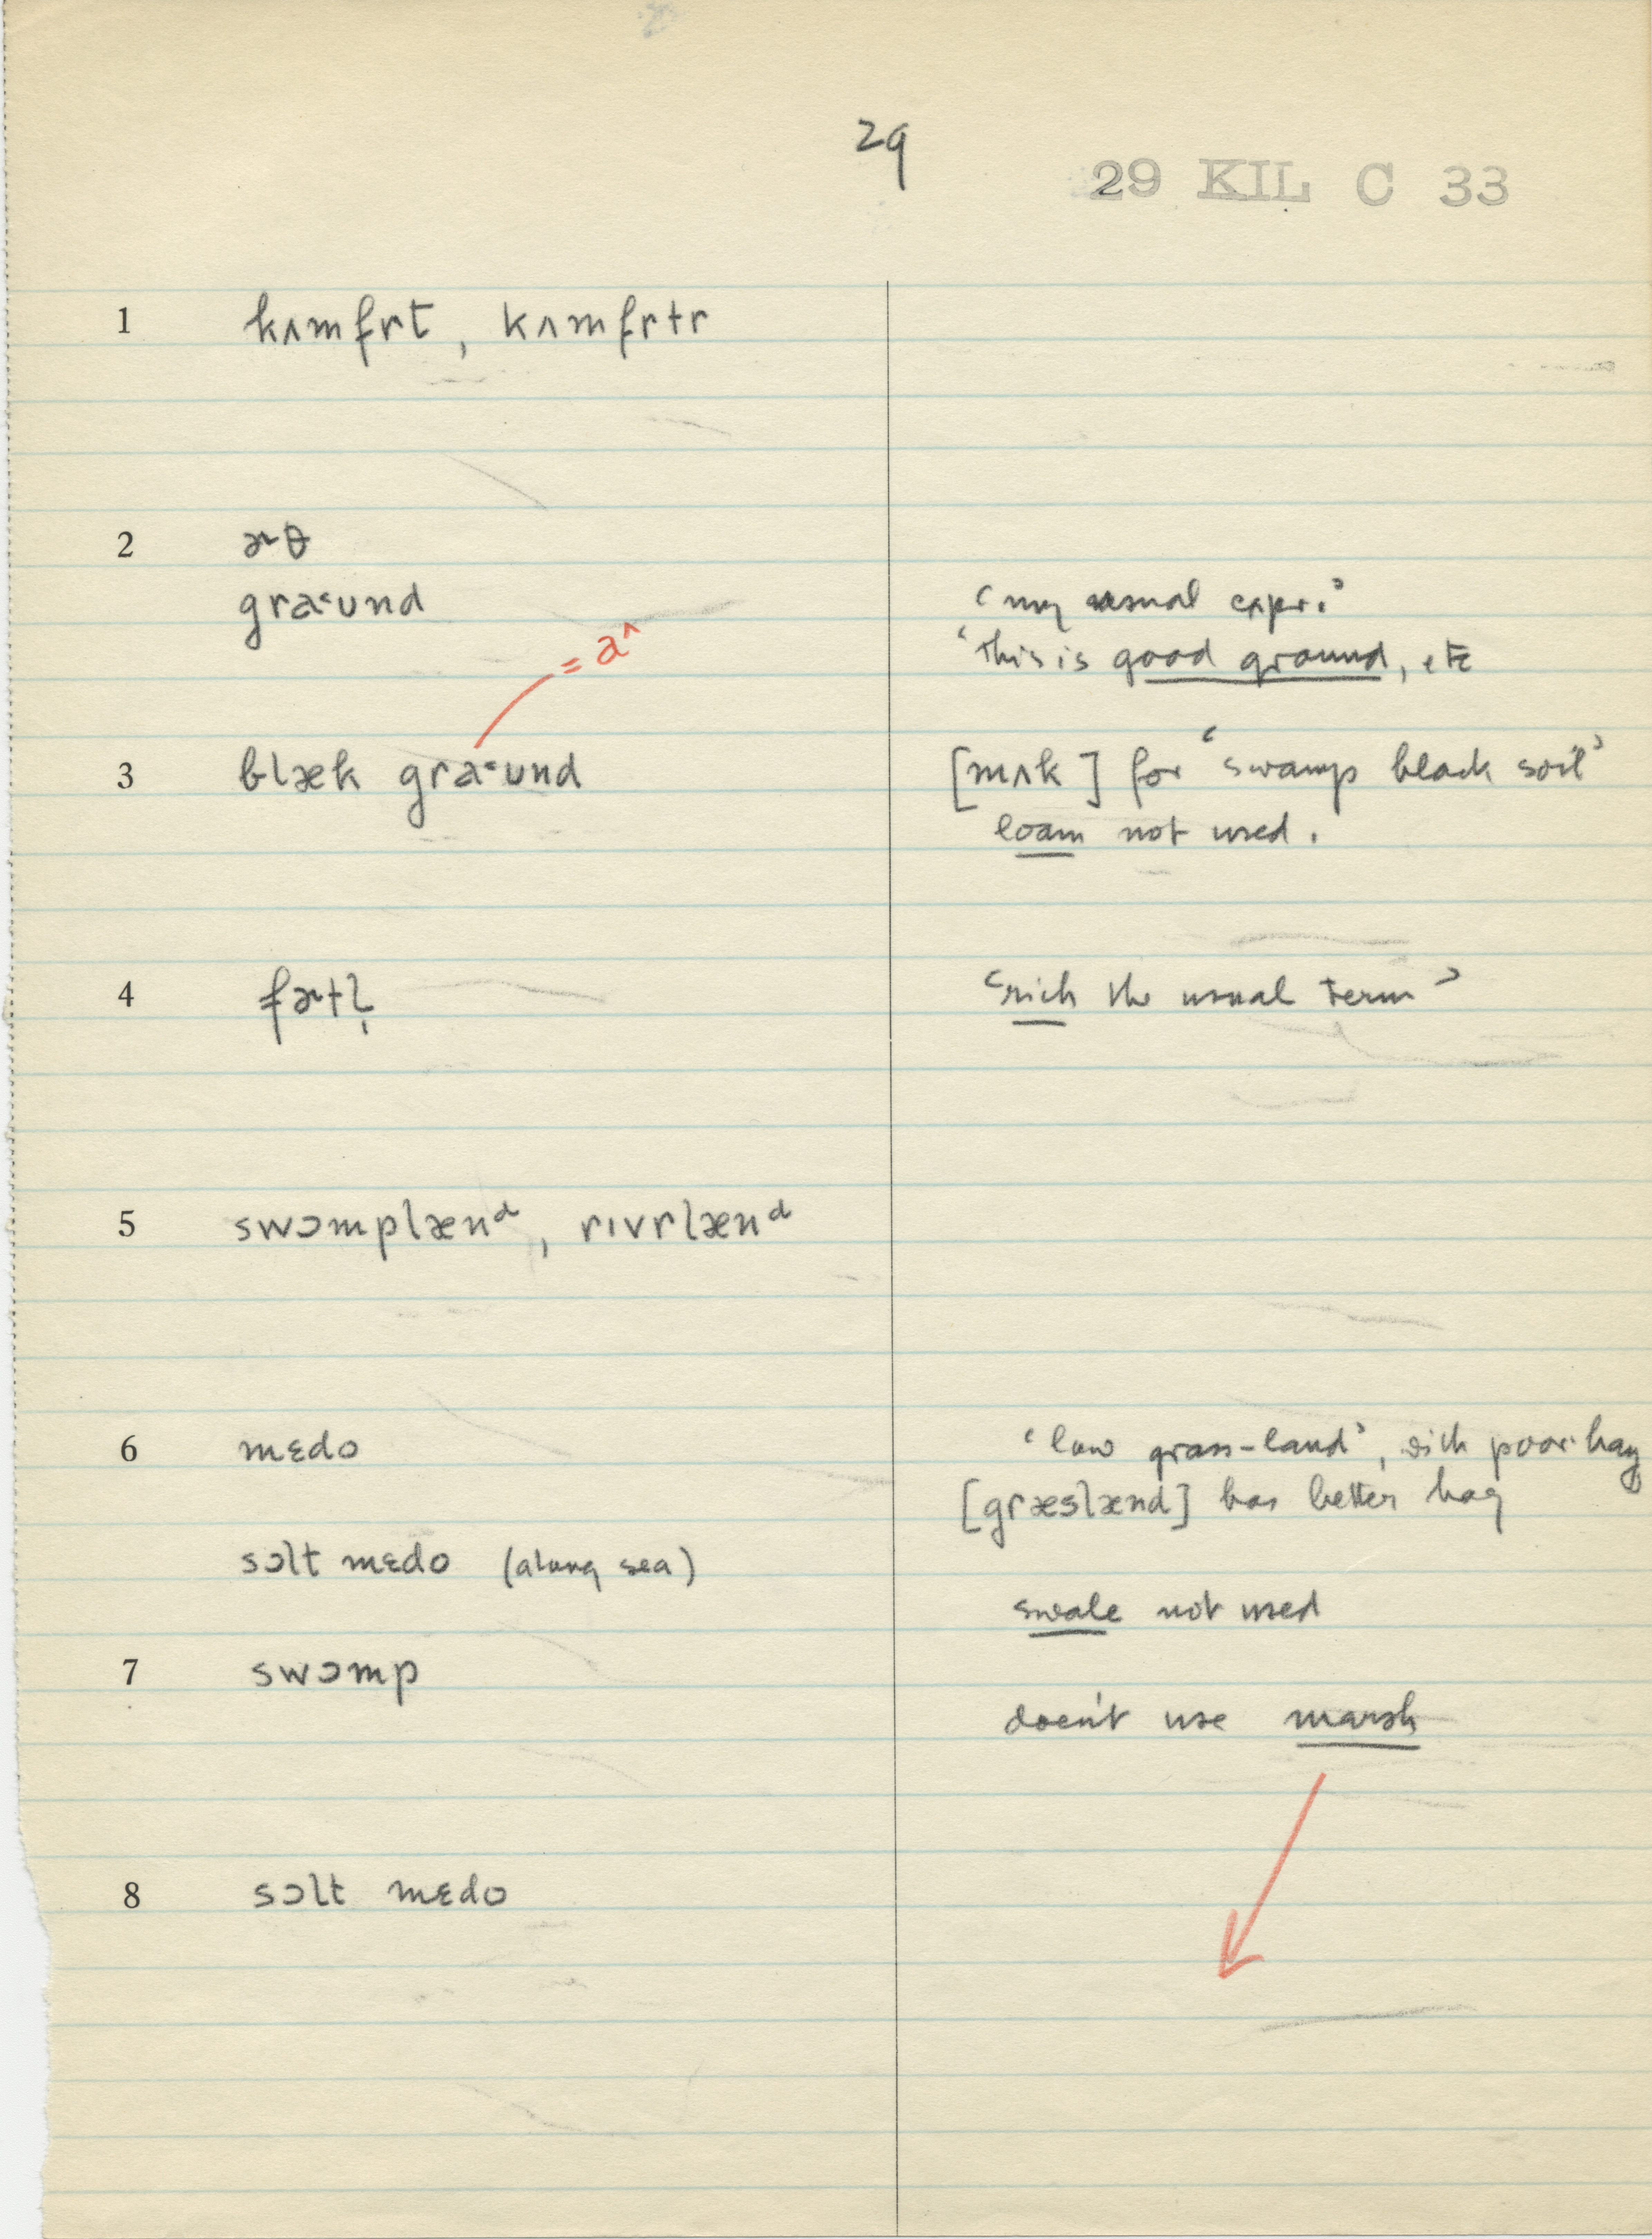 29
29 KIL C 33
1 kʌmfrt, kʌmfrtr
2 ɚθ
graˑund ‘my usual expr.’
‘this is good ground, etc
= a^
3 blæk graˑund [mʌk] for ‘swamp black soil’
loam not used.
4 fɚtl̩ ‘rich the usual term’
5 swɔmplænᵈ, rɪvrlænᵈ
6 mɛdo ‘low grass-land’, with poor hay
[græslænd] has better hay
sɔlt mɛdo (along sea)
swale not used
7 swɔmp
doesn't use marsh
8 sɔlt mɛdo